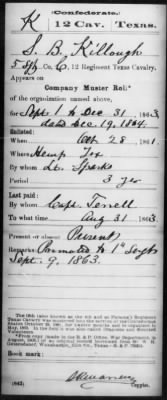 (Confederate.)
K 12 Cav. Texas.
S. B. Killough
5 Sgt, Co. C, 12 Regiment Texas Cavalry.
Appears on
Company Muster Roll
of the organization named above,
for Sept 1 to Dec 31, 1863.
dated Dec 19, 1864.
Enlisted:
When Oct 28, 1861.
Where Hemp. Tex
By whom Lt. Sparks
Period 3 yrs
Last paid:
By whom Capt. Terrell
To what time Aug 31, 1863.
Present or absent Present
Remarks: Promoted to 1st Sergt
Sept. 9, 1863.
Book mark:
(642) Copyist.